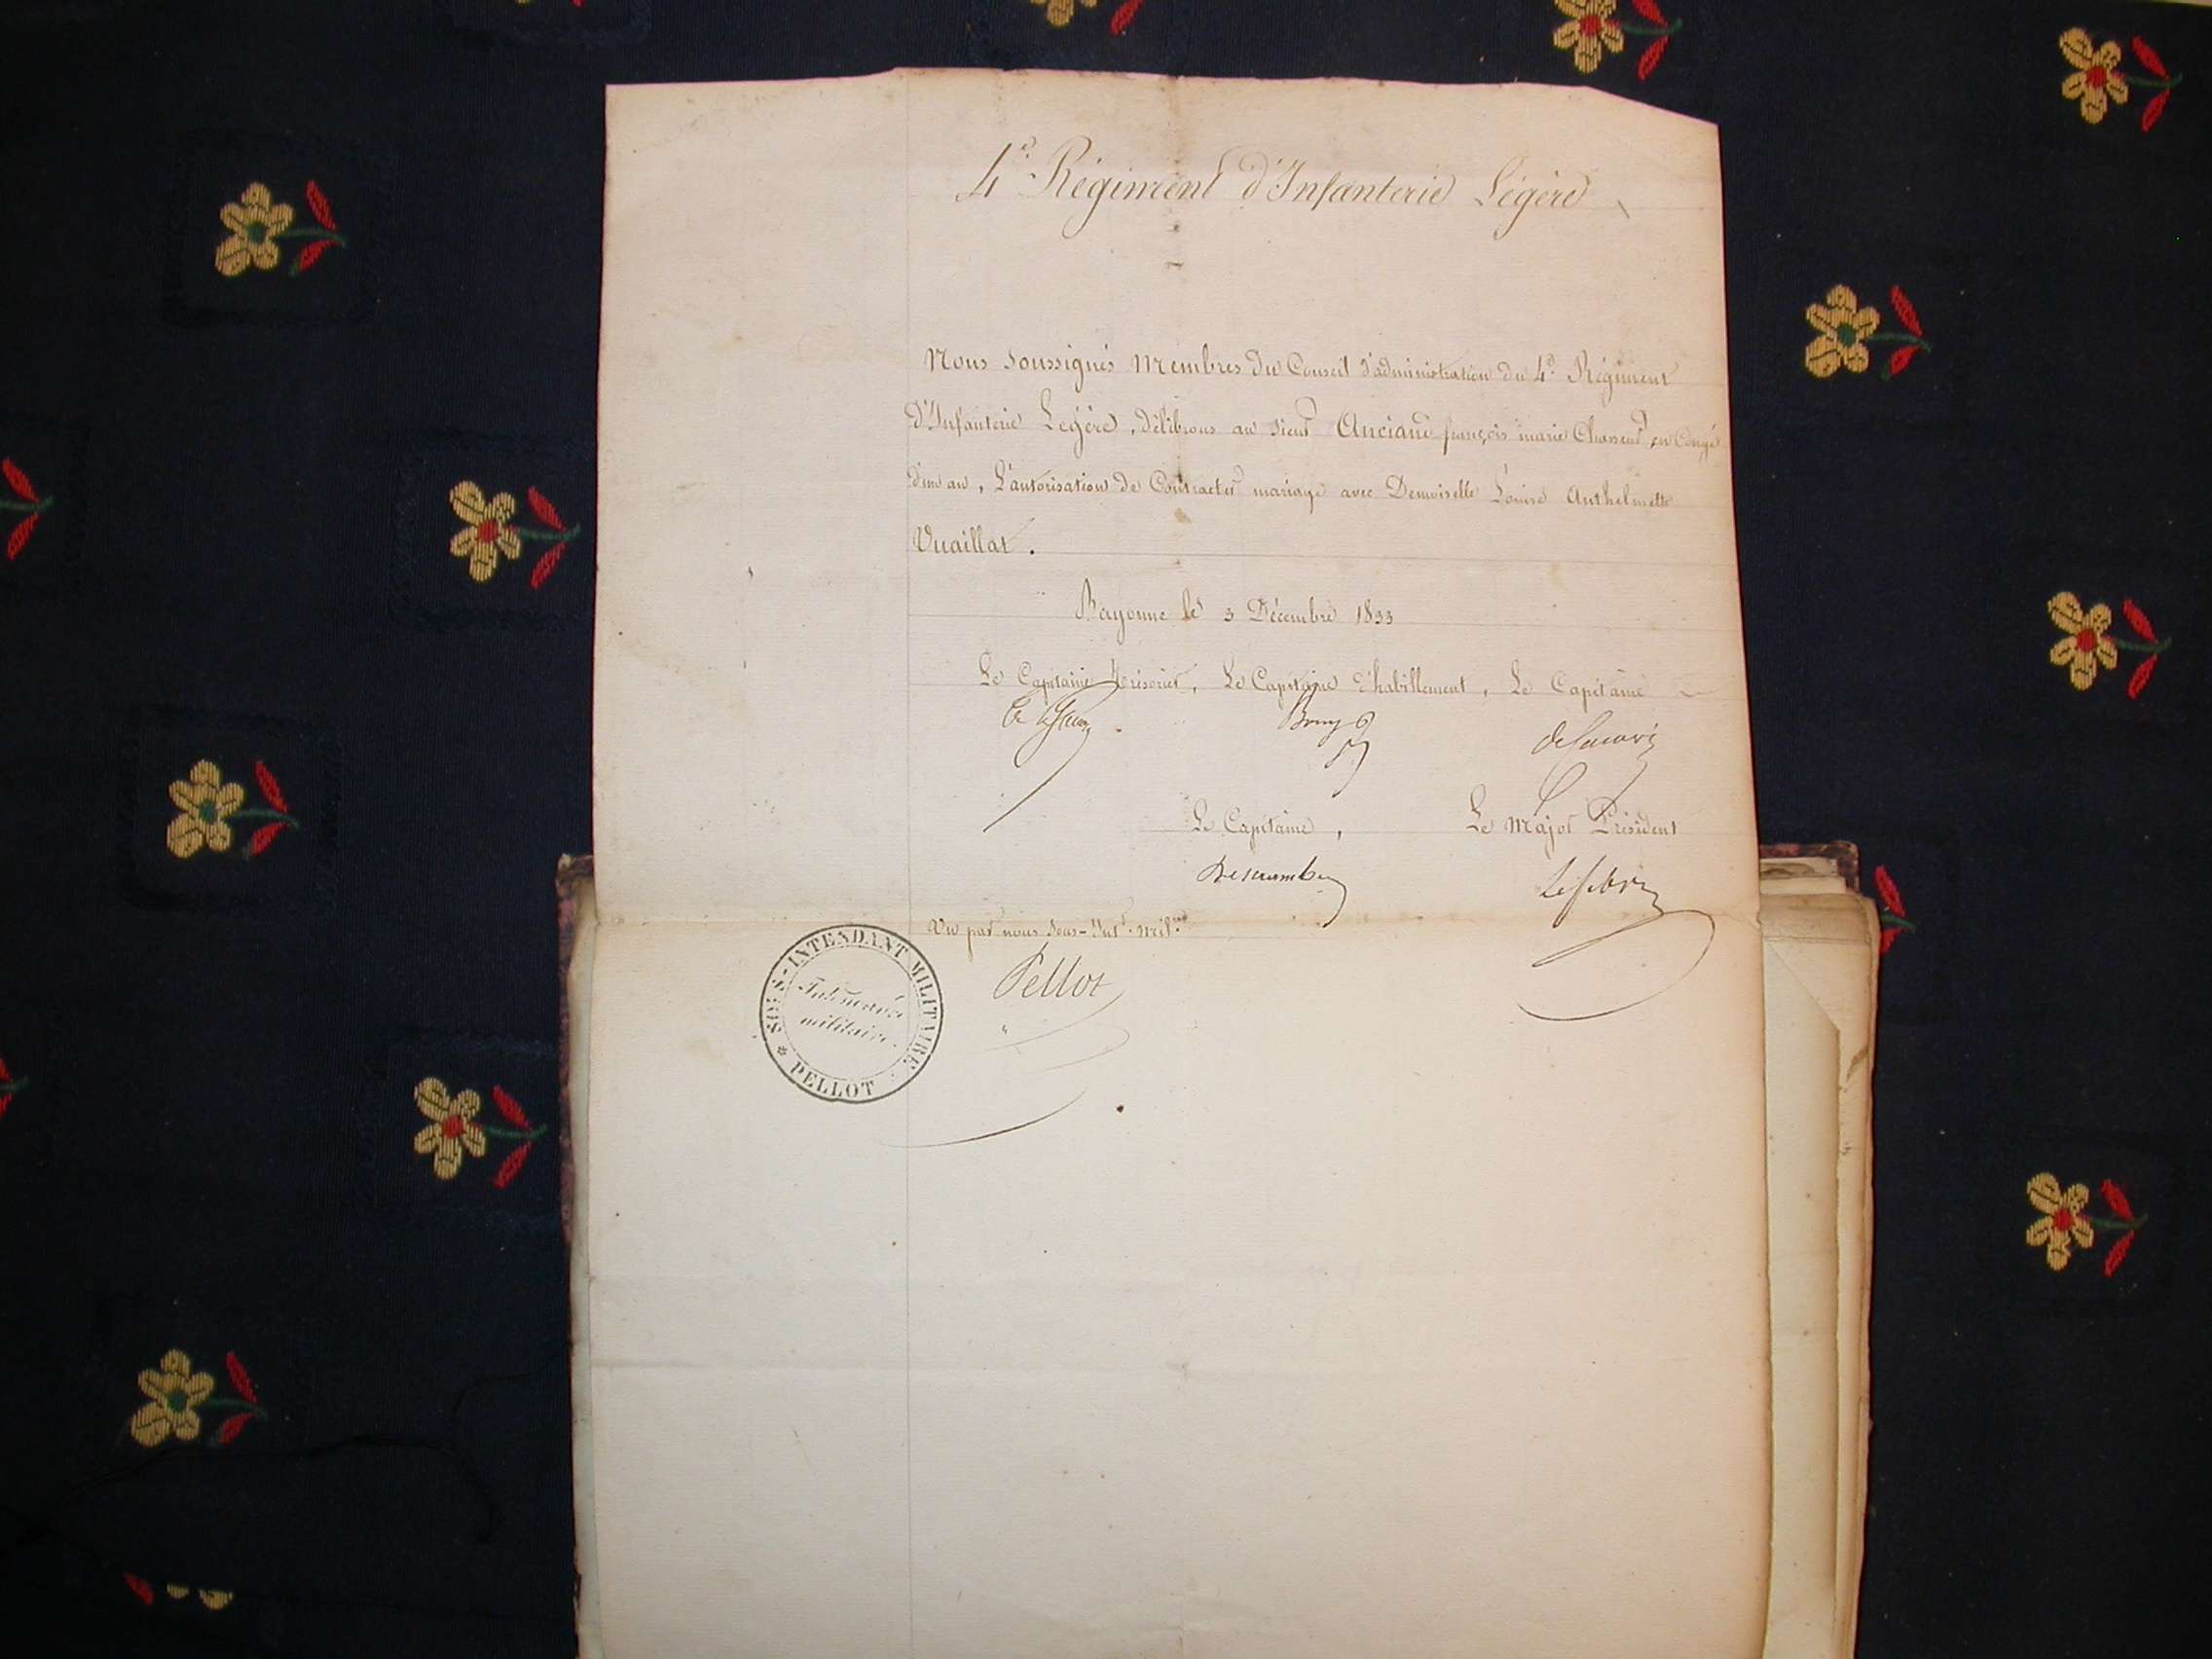 4e. Régiment d'Infanterie Légère
Nous soussignés Membres du Conseil d'administration du 4e. Régiment
d'Infanterie Légère, délibrons au sieur Anciane françois marie Chasseur en Congé
d'un an, L'autorisation de Contracter mariage avec Demoiselle Louise Anthelmette
Vuaillat.
Bayonne le 3 Décembre 1833
Le Capitaine Trésorier, Le Capitaine d'habillement, Le Capitaine
Le Capitaine, Le Major Président
Lefebvre
Vu par nous Sous-Intt. milre.
Pellot
SOUS-INTENDANT MILITAIRE
Intendance
militaire.
* PELLOT